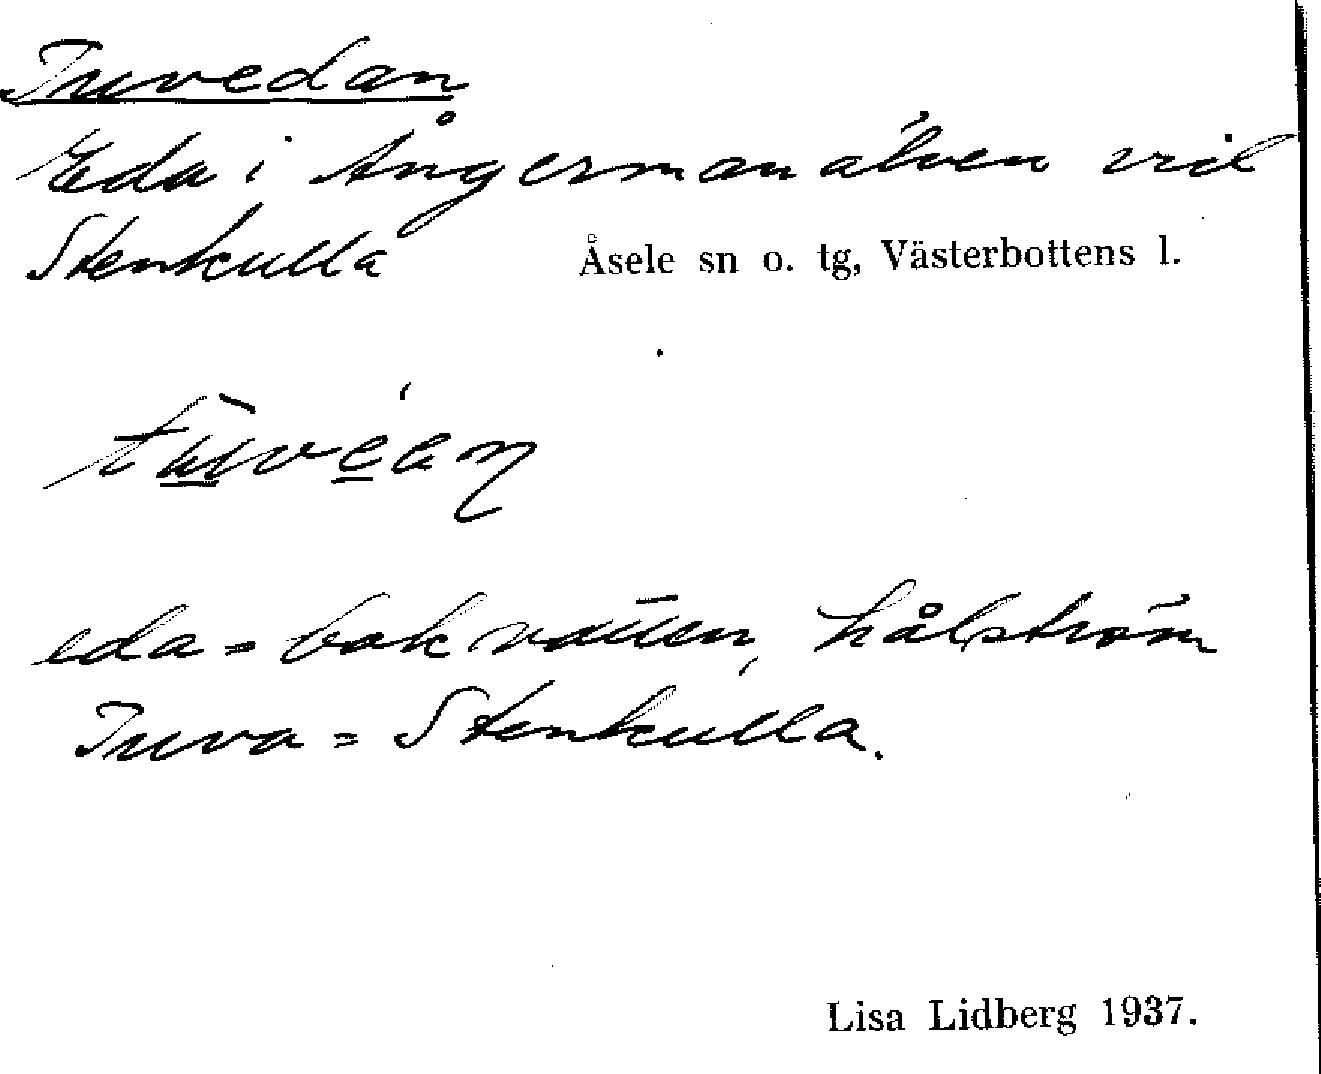 Tuvedan
Eda i Ångermanälven vid
Stenkulla Åsele sn o. tg, Västerbottens l.
eda = bakvatten, hålström
Tuva = Stenkulla.
Lisa Lidberg 1937.